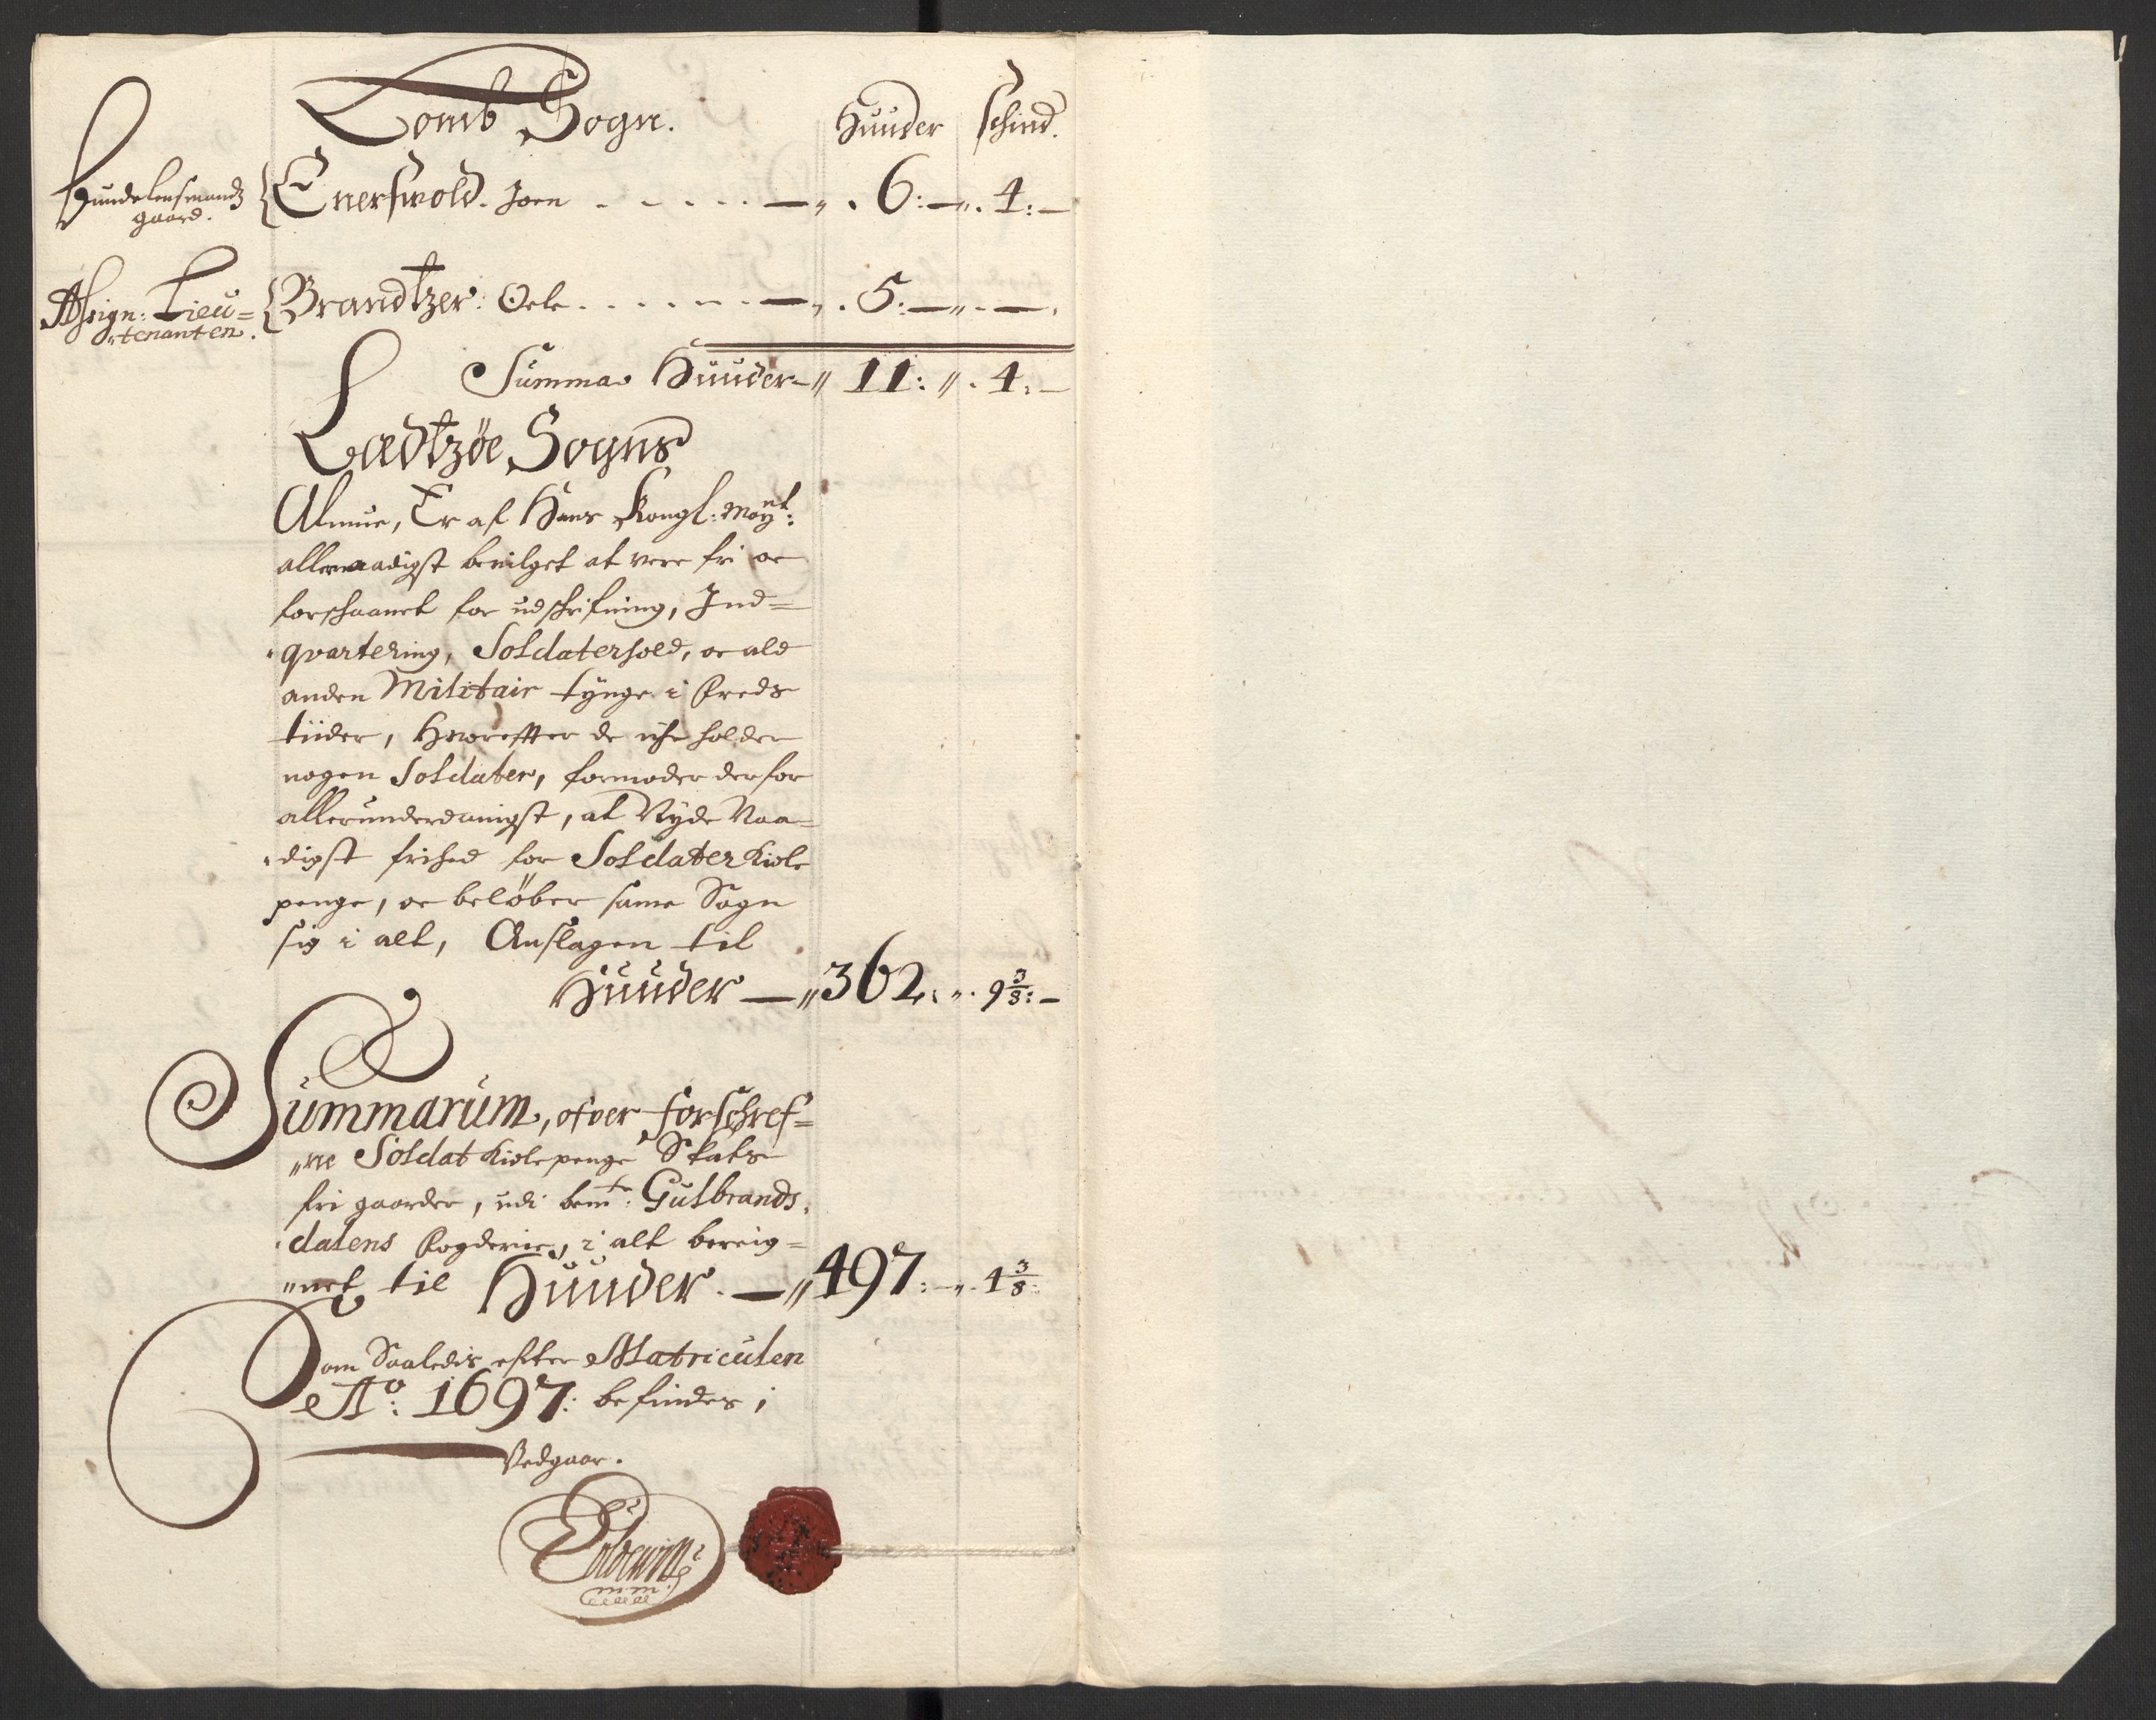 Lomb Sogn.
Huuder schind.
Bundelensmandz gaard. Enerswold. Joen - - - - - 6: - 4: -
Assign: Lieu=
tenanten. Brandtzer: Oele - - - - - 5: - -
Summa Huuder - 11: 4: -
Lædtzöe Sogns
Almue, Er af Hans Kongl: Mayt:
allernaadigst bevilget at vere fri oc
forschaanet for udschrifning, Ind=
qvartering, Soldaterhold, oc ald
anden Militair tynge i Freds
tiider, Hvorefter de iche holder
nogen Soldater, formoder derfor
allerunderdanigst, at Nyde Naa=
digst frihed for Soldater Kiole
penge, oc belöber same Sogn
sig i alt, Anslagen til
Huuder — 362: 9 3/8: -
Summarum, ofver forschref=
ne Soldat Kiole penge Skats
fri gaarder, udi bemte: Gulbrands
dalens Fogderie, i alt bereig=
net til Huuder. — 497: 4 3/8:
Som Saaledis efter Matriculen
Ao: 1697: befindes,
Vedgaar.
mm